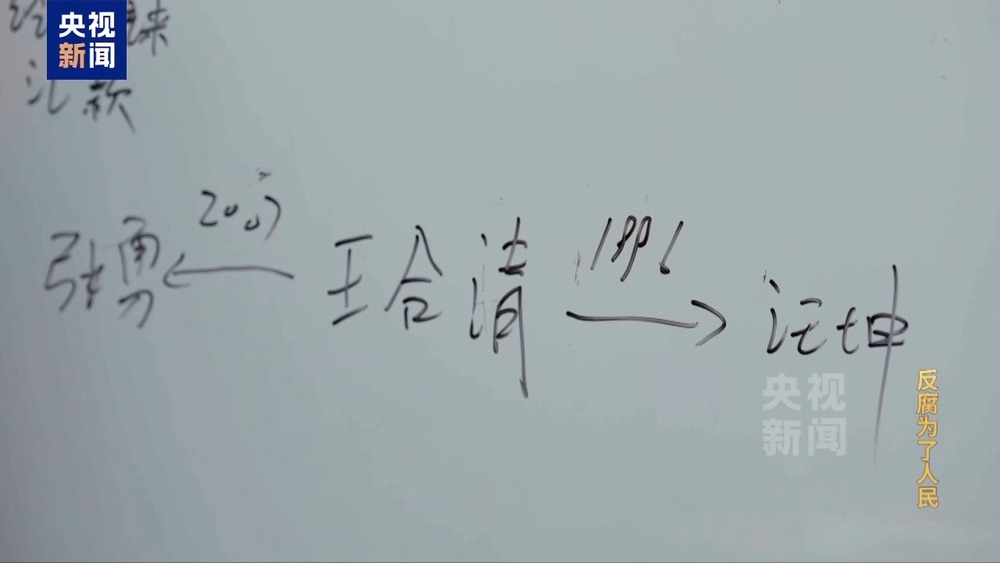 央视
新闻
来
汇款
张勇 2007 王合清 1996 汪坤
央视
新闻
反腐为了人民